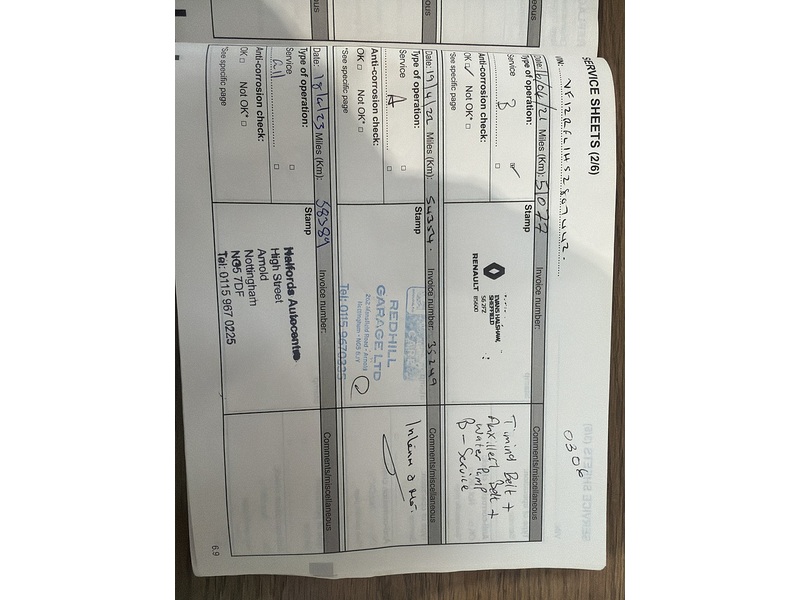 SERVICE SHEETS (2/6)
VIN: VF12RFL1H52897442.
0306
Date: 16/04/21 Miles (Km): 51077 Invoice number: Comments/miscellaneous
Type of operation: Stamp
Service B
Anti-corrosion check:
OK Not OK*
*See specific page
EVANS HALSHAW
SHEFFIELD
S6 2FZ
RENAULT
Timing Belt +
Auxillery Belt +
Water Pump
B - Service
Date: 19/4/22 Miles (Km): 54354. Invoice number: 35249 Comments/miscellaneous
Type of operation: Stamp
Service A
Anti-corrosion check:
OK Not OK*
*See specific page
REDHILL
GARAGE LTD
Tel: 0115 9670225
Date: 18/4/23 Miles (Km): 58389 Invoice number: Comments/miscellaneous
Type of operation: Stamp
Service
Anti-corrosion check:
OK Not OK*
*See specific page
Halfords Autocentre
High Street
Arnold
Nottingham
NG5 7DF
Tel: 0115 967 0225
6.9